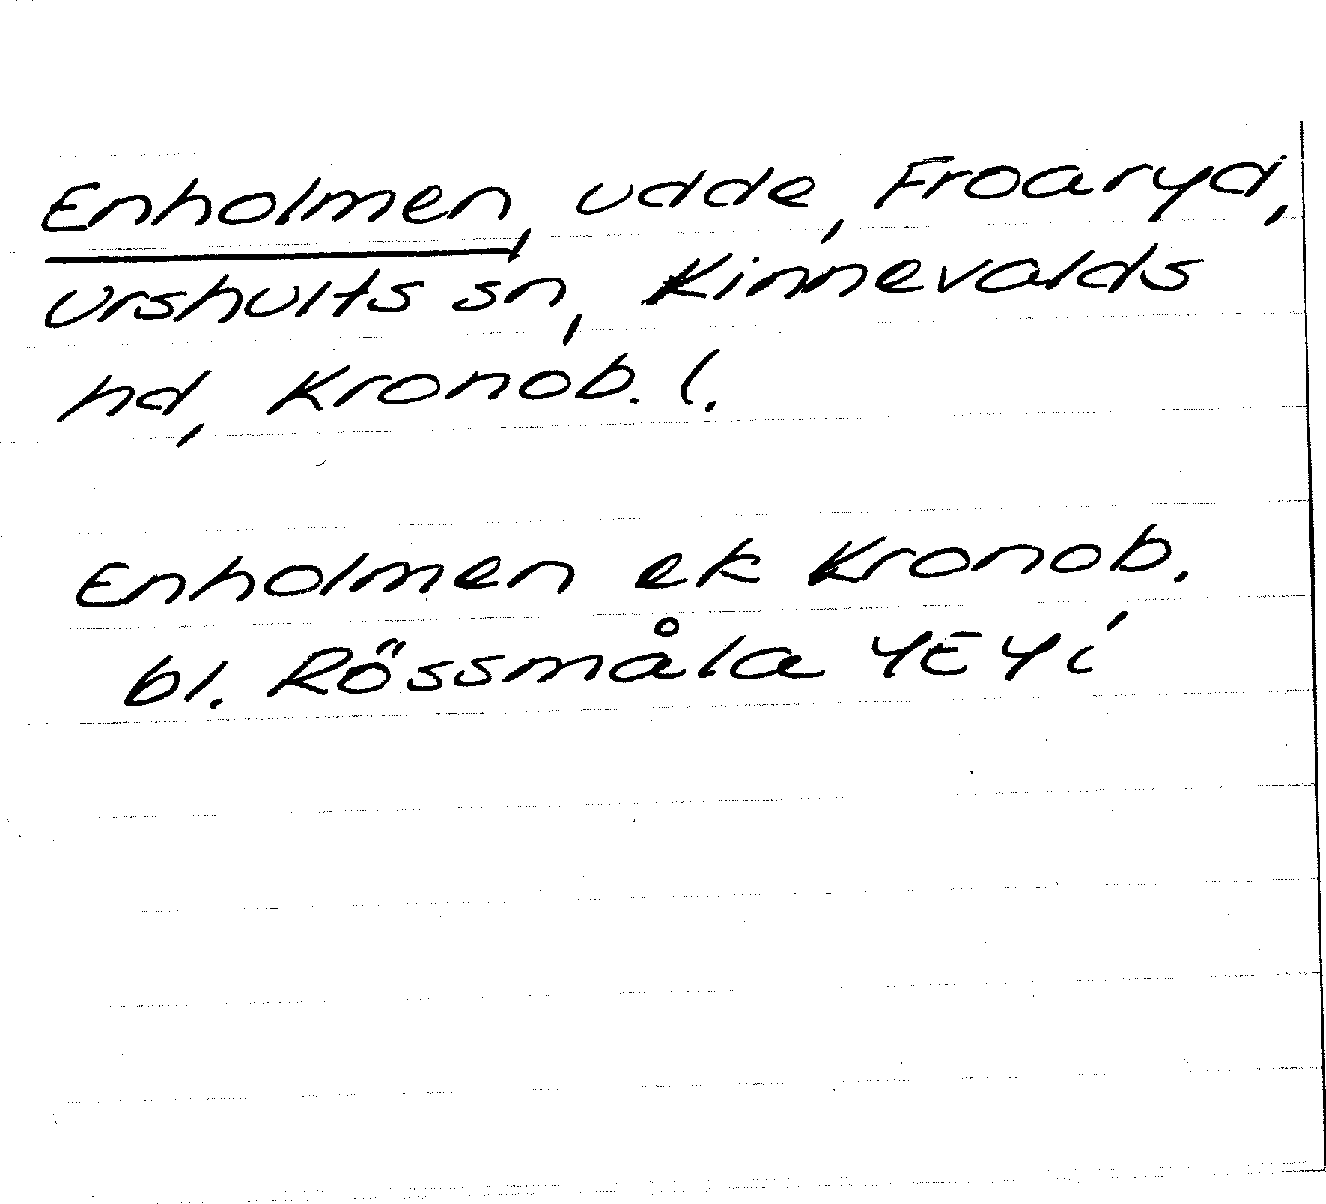 Enholmen, udde, Froaryd,
Urshults sn, Kinnevalds
hd, Kronob. l.
Enholmen ek Kronob.
bl. Rössmåla 4E4i